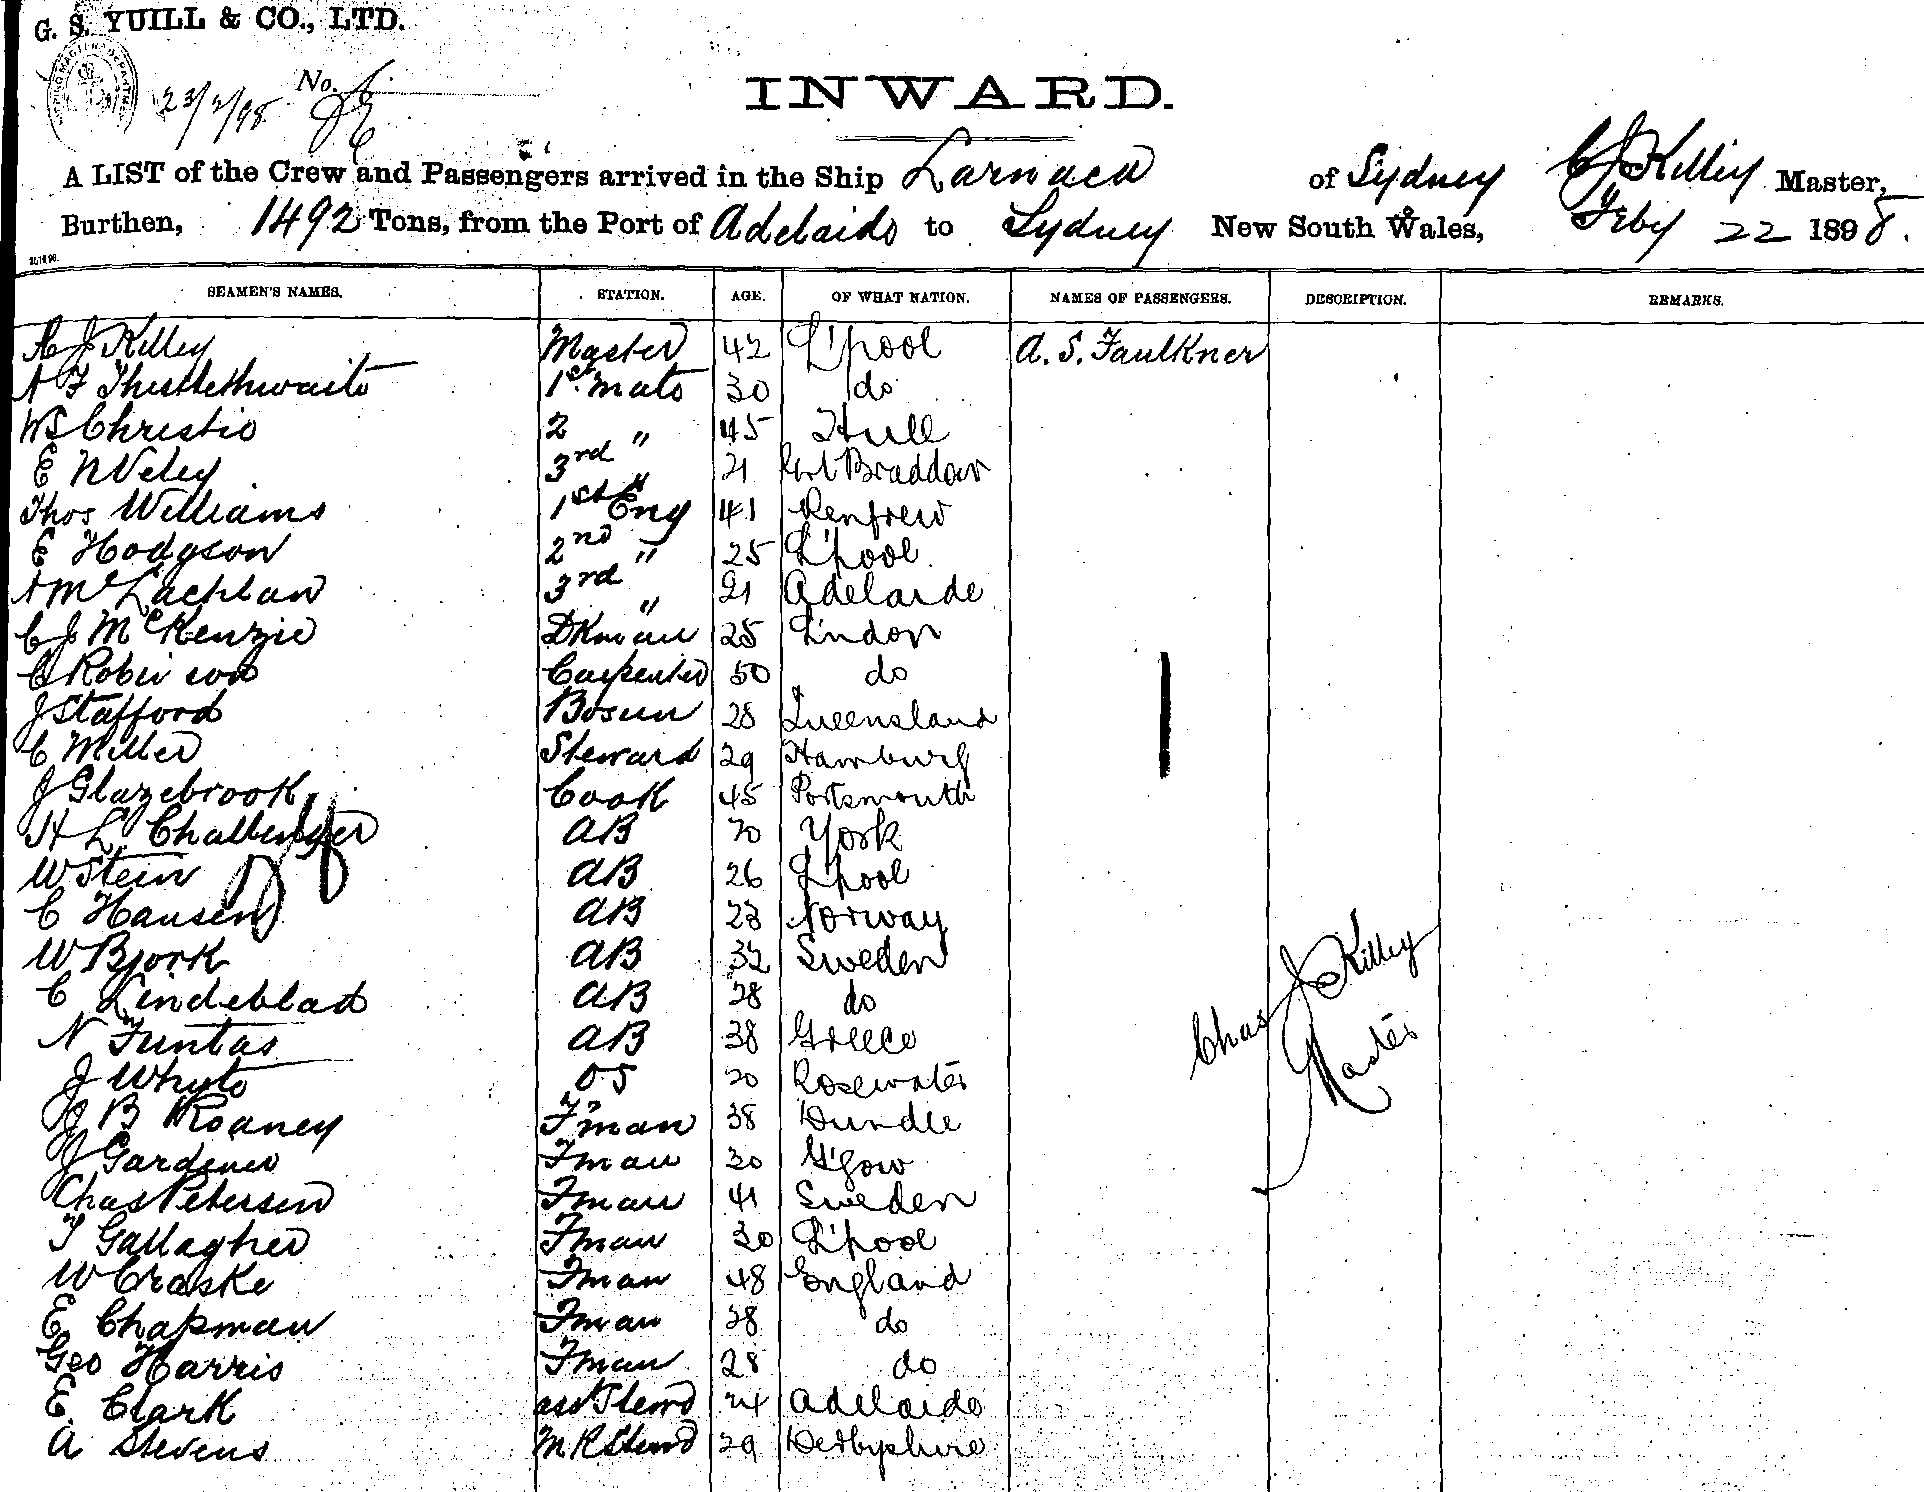 G. S. YUILL & CO., LTD.
23/2/98 No.
INWARD.
A LIST of the Crew and Passengers arrived in the Ship Larnaca of Sydney C J Killey Master,
Burthen, 1492 Tons, from the Port of Adelaide to Sydney New South Wales, Feby 22 1898.
SEAMEN'S NAMES. STATION. AGE. OF WHAT NATION. NAMES OF PASSENGERS. DESCRIPTION. REMARKS.
C J Killey Master 42 L'pool A. S. Faulkner
A F Thistlethwaite 1st mate 30 do
W S Christie 2 " 45 Hull
E N Veley 3rd " 21 Port Braddon
Thos Williams 1st Eng 41 Renfrew
E Hodgson 2nd " 25 L'pool
A McLachlan 3rd " 21 Adelaide
C J McKenzie DKman 25 London
C Robinson Carpenter 50 do
J Stafford Bosun 28 Queensland
C Miller Steward 29 Hamburg
J Glazebrook Cook 45 Portsmouth
H L Challenger AB 20 York
W Stein AB 26 L'pool
C Hansen AB 23 Norway
W Bjork AB 32 Sweden
C Lindeblad AB 28 do
N Funtas AB 38 Greece
J Whyte OS 20 Rosewater
J B Roaney F'man 38 Dundee
J Gardener Fman 30 G'gow
Chas Petersen Fman 41 Sweden
T Gallagher Fman 30 L'pool
W Craske Fman 48 England
E Chapman Fman 38 do
Geo Harris Fman 28 do
E. Clark ass Stewd 24 Adelaide
A Stevens M R Stewd 29 Derbyshire
Chas J Killey
Master